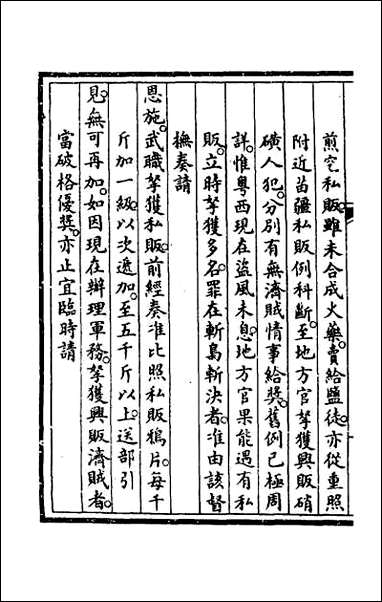 煎窆私販。雖未合成火藥。賣給鹽徒。亦從重照
附近苗疆私販例科斷。至地方官拏獲興販硝
磺人犯。分別有無濟賊情事給獎。舊例已極周
詳。惟粵西現在盜風未息。地方官果能遇有私
販。立時拏獲多名。罪在斬梟斬決者。准由該督
撫奏請
恩施。武職拏獲私販。前經奏准比照私販鴉片。每千
斤加一級。以次遞加。至五千斤以上。送部引
見。無可再加。如因現在辦理軍務。拏獲興販濟賊者。
當破格優獎。亦止宜臨時請